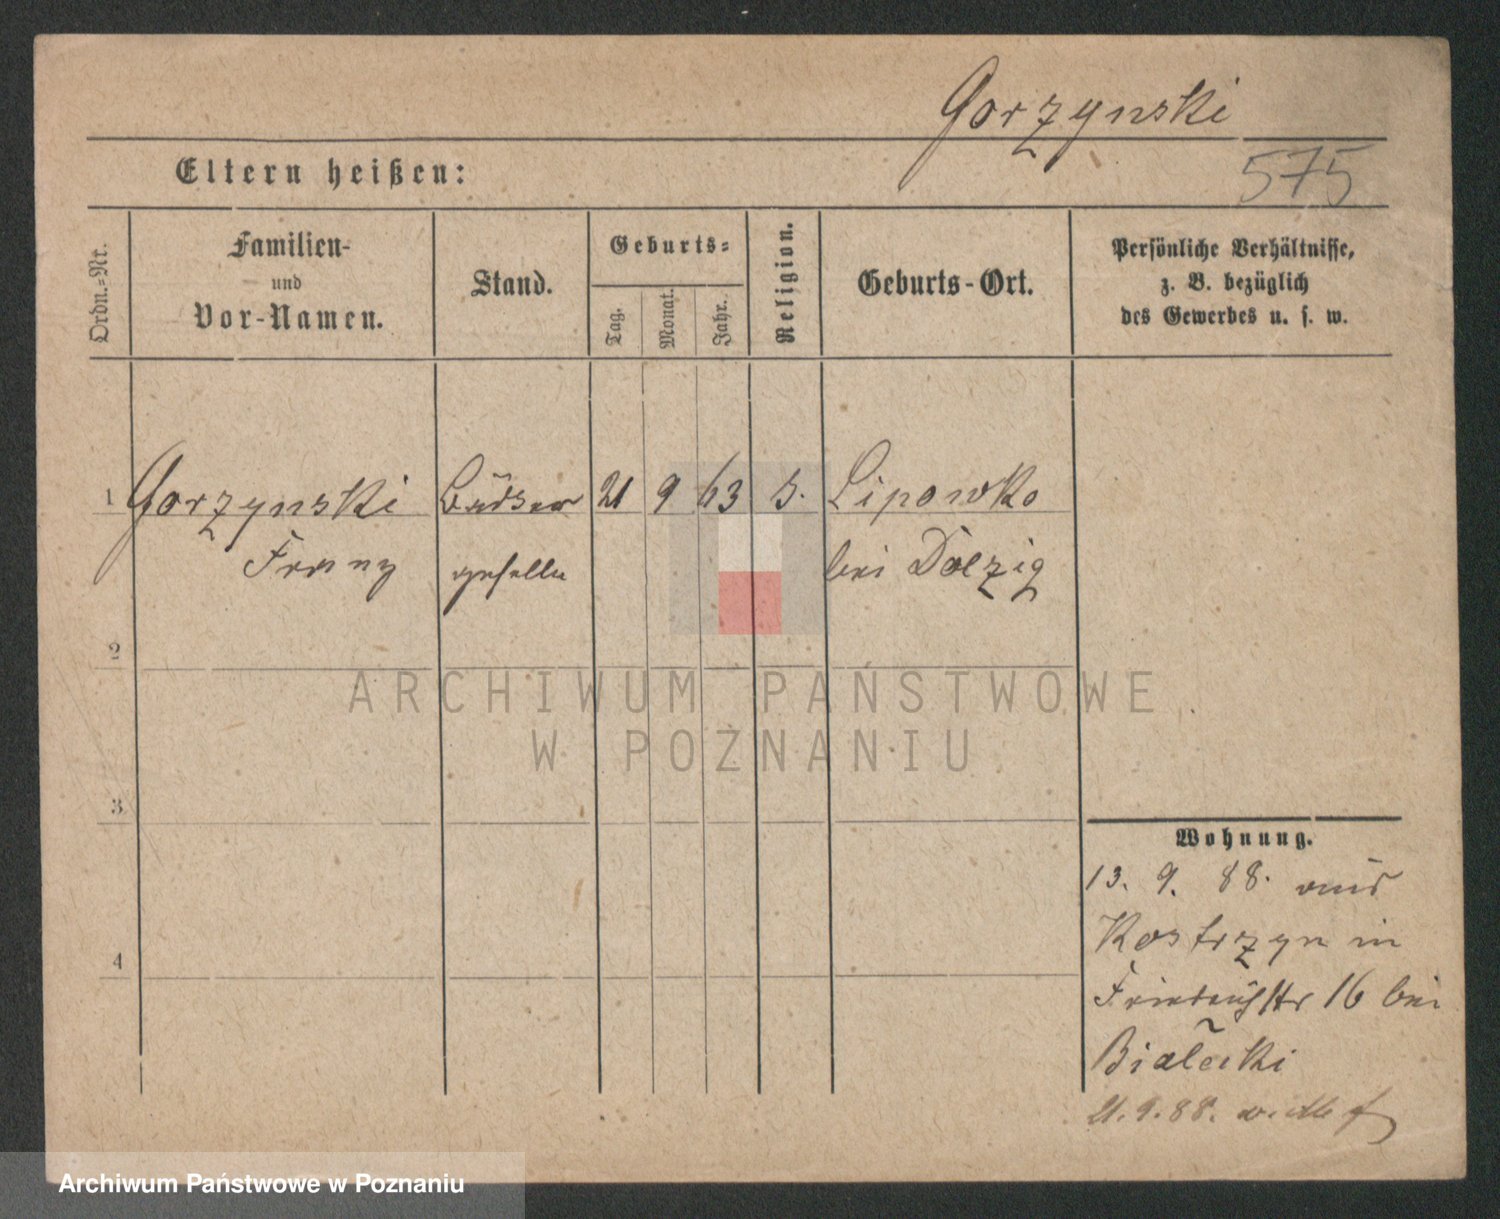 Gorzynski
Eltern heißen:
575
Ordn.-Nr.
Familien-
und
Vor-Namen.
Stand.
Geburts-
Tag.
Monat.
Jahr.
Religion.
Geburts-Ort.
Persönliche Verhältnisse,
z. B. bezüglich
des Gewerbes u. s. w.
1 Gorzynski 21 9 63 Lipowko
Franz geselle bei Dolzig
2
ARCHIWUM PAŃSTWOWE
W POZNANIU
3
4
Wohnung.
13. 9. 88. aus
Kostrzyn in
Friedrichstr 16 bei
Bialecki
21.9.88.
Archiwum Państwowe w Poznaniu